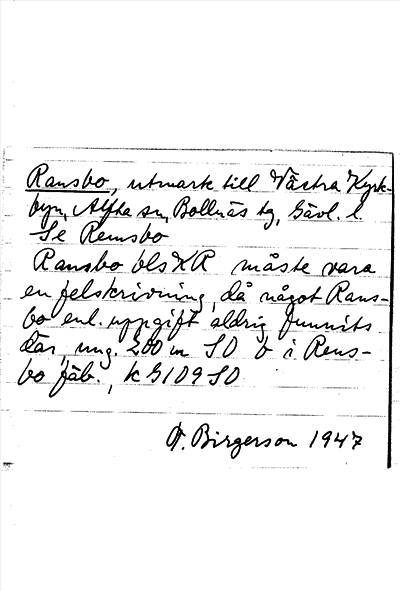 Ransbo, utmark till Västra Kyrk-
byn, Alfta sn, Bollnäs tg, Gävl. l.
Se Rensbo
Ransbo bls XR måste vara
en felskrivning, då något Rans-
bo enl. uppgift aldrig funnits
där, ung. 200 m SO i Rens-
bo fäb., k G109 SO
F. Birgerson 1947